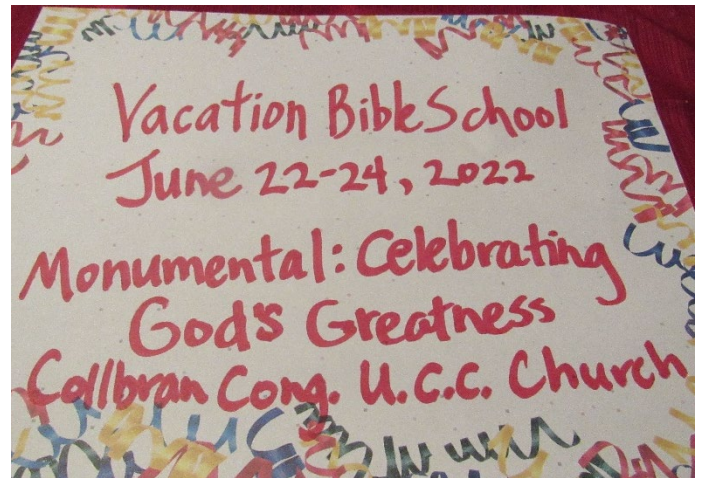 Vacation Bible School
June 22-24, 2022
Monumental: Celebrating
God's Greatness
Collbran Cong. U.C.C. Church